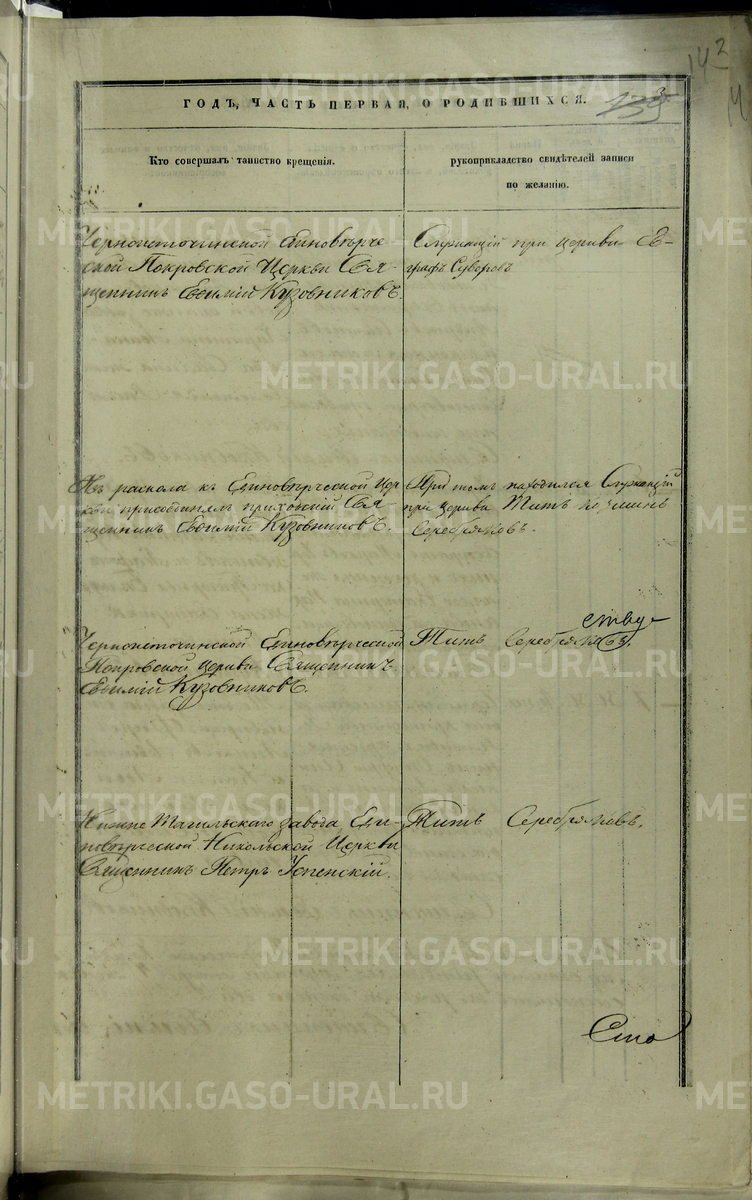 142
14
ГОДЪ, ЧАСТЬ ПЕРВАЯ, О РОДИВШИХСЯ.
3
Кто совершалъ таинство крещенія.
рукоприкладство свидѣтелей записи
по желанію.
Черноисточинской Единовѣрче
ской Покровской Церкви Свя-
щенникъ Евѳимій Кузовниковъ.
Служащій при церкви Ев-
графъ Суворовъ
Изъ раскола къ Единовѣрческой Цер
кви присоединялъ приходскій Свя
щенникъ Евѳимій Кузовниковъ.
При томъ находился Служащій
при Церкви Титъ
Серебряковъ.
Черноисточинской Единовѣрческой
Покровской Церкви Священникъ
Евѳимій Кузовниковъ.
Титъ Серебряковъ.
ству-
Нижне Тагильскаго завода Еди-
новѣрческой Никольской Церкви
Священникъ Петръ Успенскій.
Титъ Серебряковъ.
METRIKI.GASO-URAL.RU